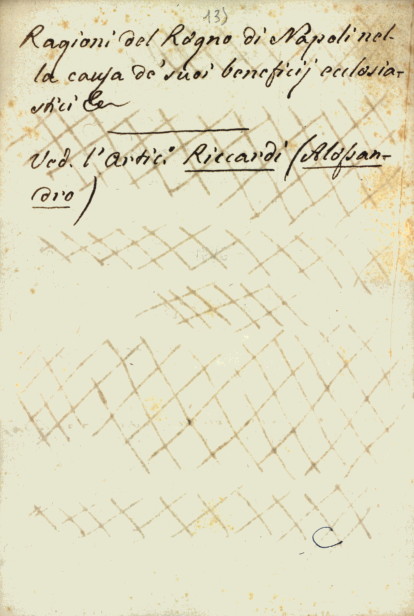 13)
Ragioni del Regno di Napoli nel-
la causa de' suoi beneficij ecclesia-
stici &c
Ved. l'Artic.º Riccardi (Alessan-
dro)
C